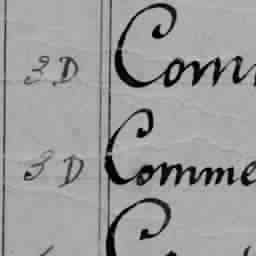 3 D Com
3 D Comme
C